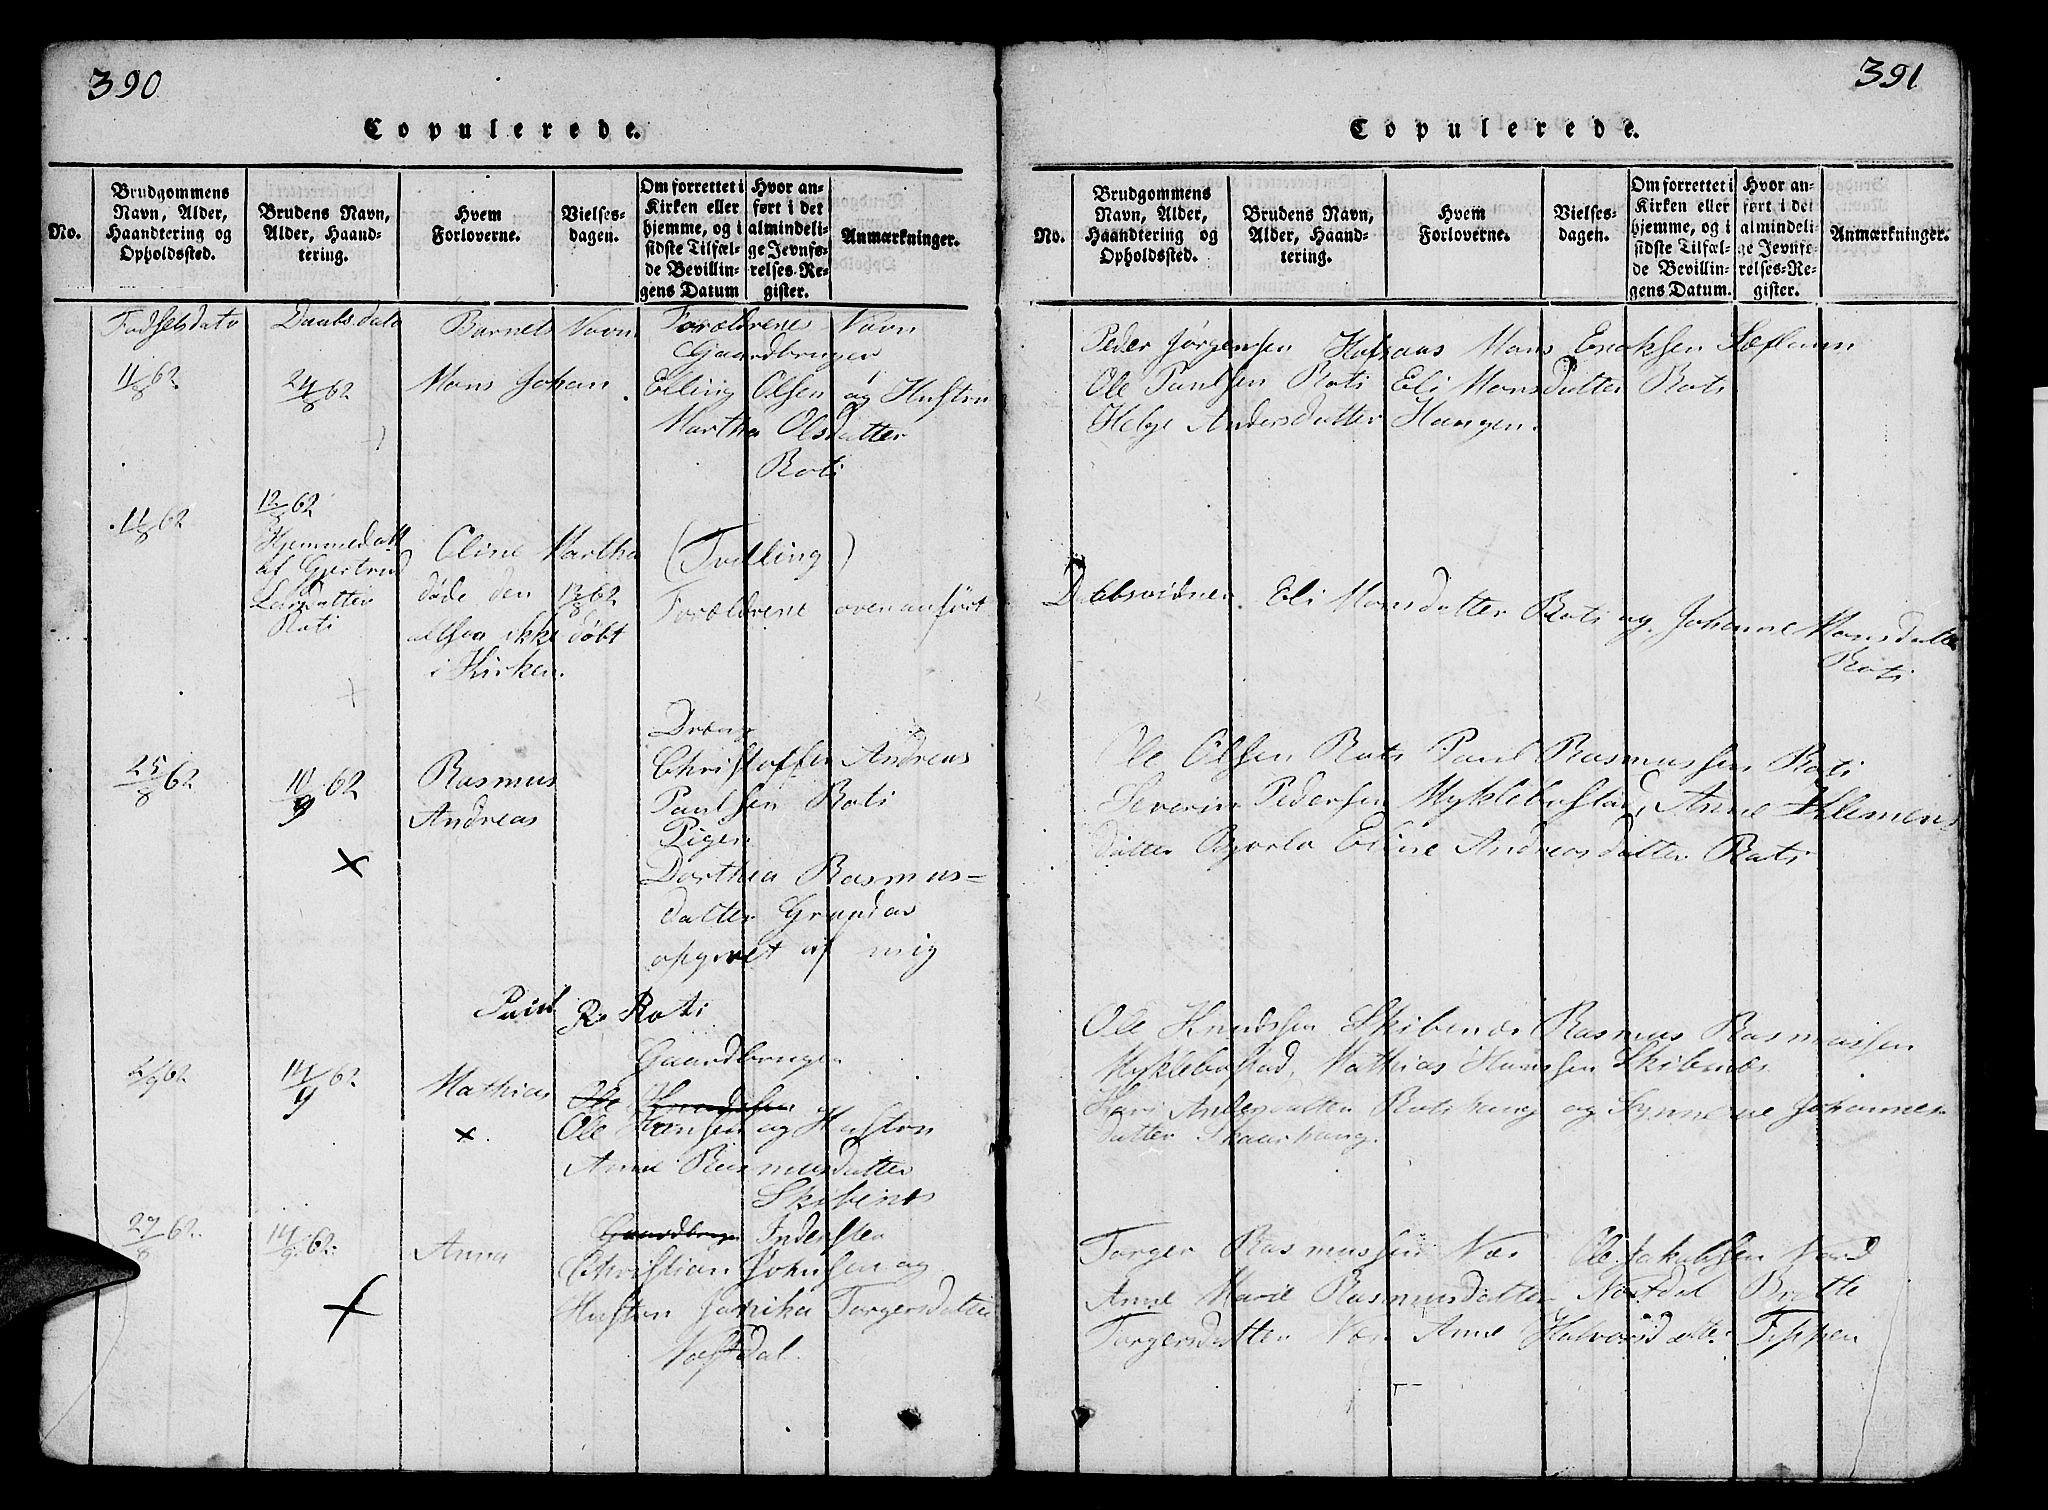 390
Copulerede.
No.
Brudgommens
Navn, Alder,
Haandtering og
Opholdssted.
Brudens Navn,
Alder, Haand-
tering.
Hvem
Forloverne.
Vielses-
dagen.
Om forrettet i
Kirken eller
hjemme, og i
sidste Tilfæl-
de Bevillin-
gens Datum
Hvor an-
ført i det
almindeli-
ge Jevnfø-
relses-Re-
gister.
Anmærkninger.
Fødselsdato Daabsdato Barnets Navn Forældrenes Navn
Gaardbruger
11/8 62 24/8 62 Mons Johan. Elling Olsen og Hustru
Martha Olsdatter
Roti
11/8 62 12/8 62
Hjemmedøbt
af Gjertrud
Larsdatter
Roti
Eline Martha
døde den 13/8 62
altsaa ikke døbt
i Kirken.
(Tvilling)
Forældrene ovenanført
Dreng
25/8 62 10/9 62 Rasmus
Andreas
Christoffer Andreas
Paulsen Roti
Pigen
Dorthea Rasmus-
datter Grundas
opgivet af mig
Paul R. Roti
Gaardbruger
2/9 62 14/9 62 Mathias
Ole Knudsen
Ole Hansen og Hustru
Anne Rasmusdatter
Skibenes
27/8 62. 14/9 62. Anna
Gaardbrug Inderster
Christian Johnsen og
Hustru Janika Torgersdatter
Næstdal.
391
Copulerede.
No.
Brudgommens
Navn, Alder,
Haandtering og
Opholdssted.
Brudens Navn,
Alder, Haand-
tering.
Hvem
Forloverne.
Vielses-
dagen.
Om forrettet i
Kirken eller
hjemme, og i
sidste Tilfæl-
de Bevillin-
gens Datum.
Hvor an-
ført i det
almindeli-
ge Jevnfø-
relses-Re-
gister.
Anmærkninger.
Peder Jørgensen Mons Ericksen
Ole Paulsen Roti Eli Monsdatter Roti
Helge Andersdatter Haugen.
Daabsvidner. Eli Monsdatter Roti og Johanne Monsdatter
Roti
Ole Olsen Roti Paul Rasmussen Roti
Severin Pedersen Myklebostad, Anne Klemens
datter Eline Andreasdatter Roti
Ole Knudsen Skibenes Rasmus Rasmussen
Myklebostad, Mathias Hansen Skibenes
Andersdatter Rotihaug og Synneve Johannes
datter Skaarhaug.
Torger Rasmussen Næs Ole Jakobsen
Anne Marie Rasmusdatter Næstdal Brette
Torgersdatter Næs Anne Halvorsdatter Tippen